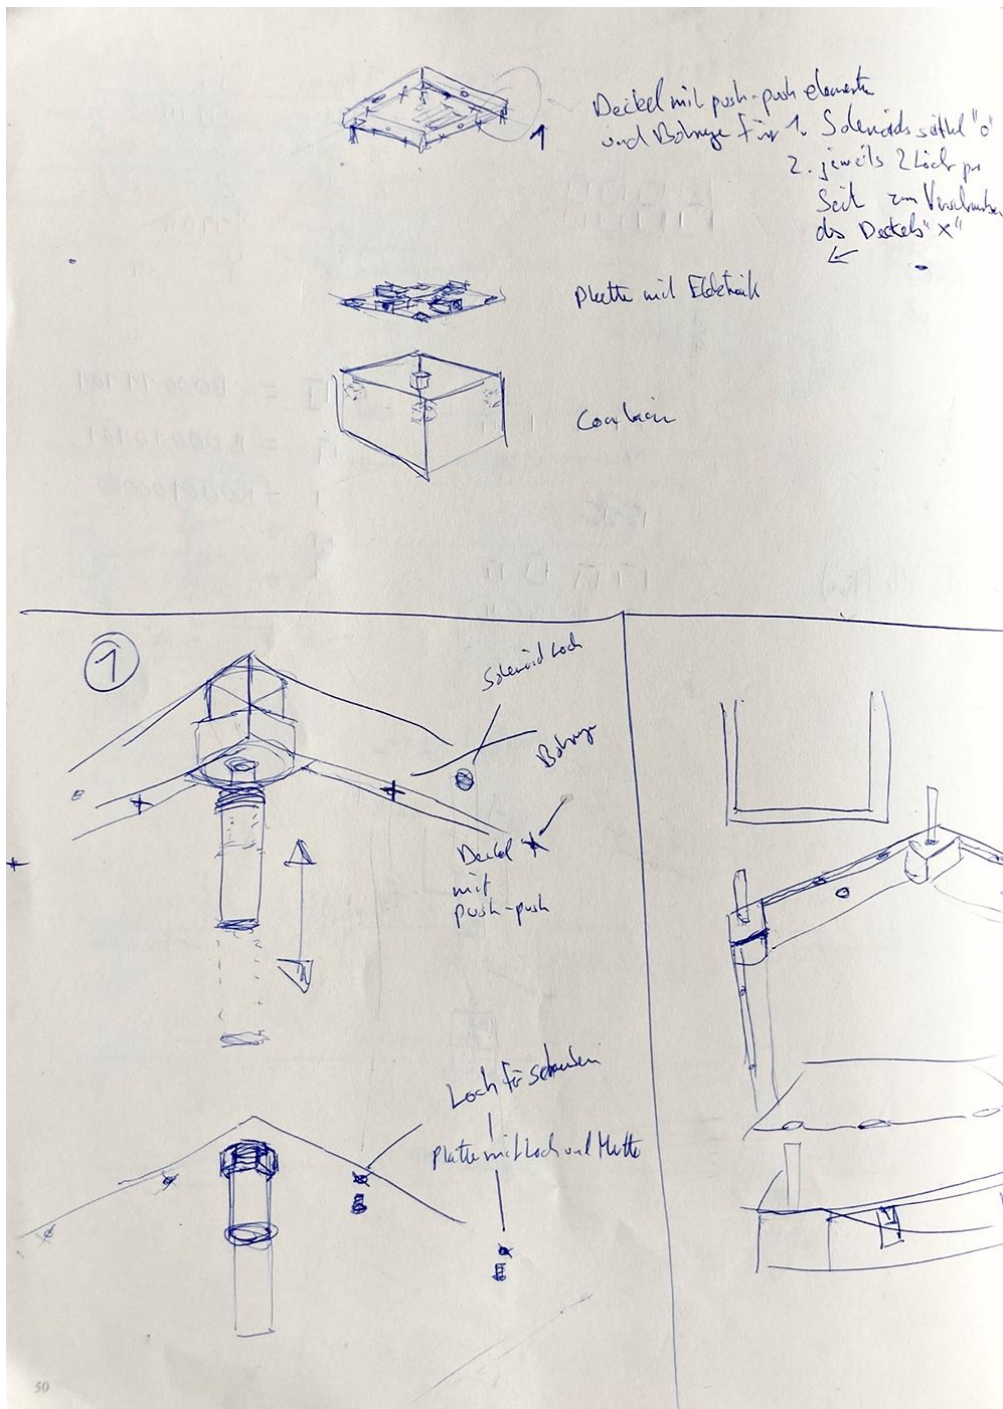 Deckel mit push-push elemente
und Bohrunge für 1. Solenoids "o"
2. jeweils 2 Loch pro
Seit zum
des Deckels "x"
1
Platte mit Elektronik
Container
1
Solenoid Loch
Bohrunge
Deckel
mit
push-push
Loch für schrauben
Platte mit Loch und Mutter
50